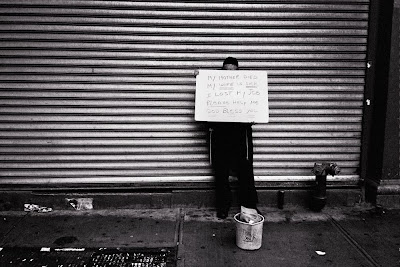 MY MOTHER DIED
MY WIFE IS SICK
I LOST MY JOB
PLEASE HELP ME
GOD BLESS YOU